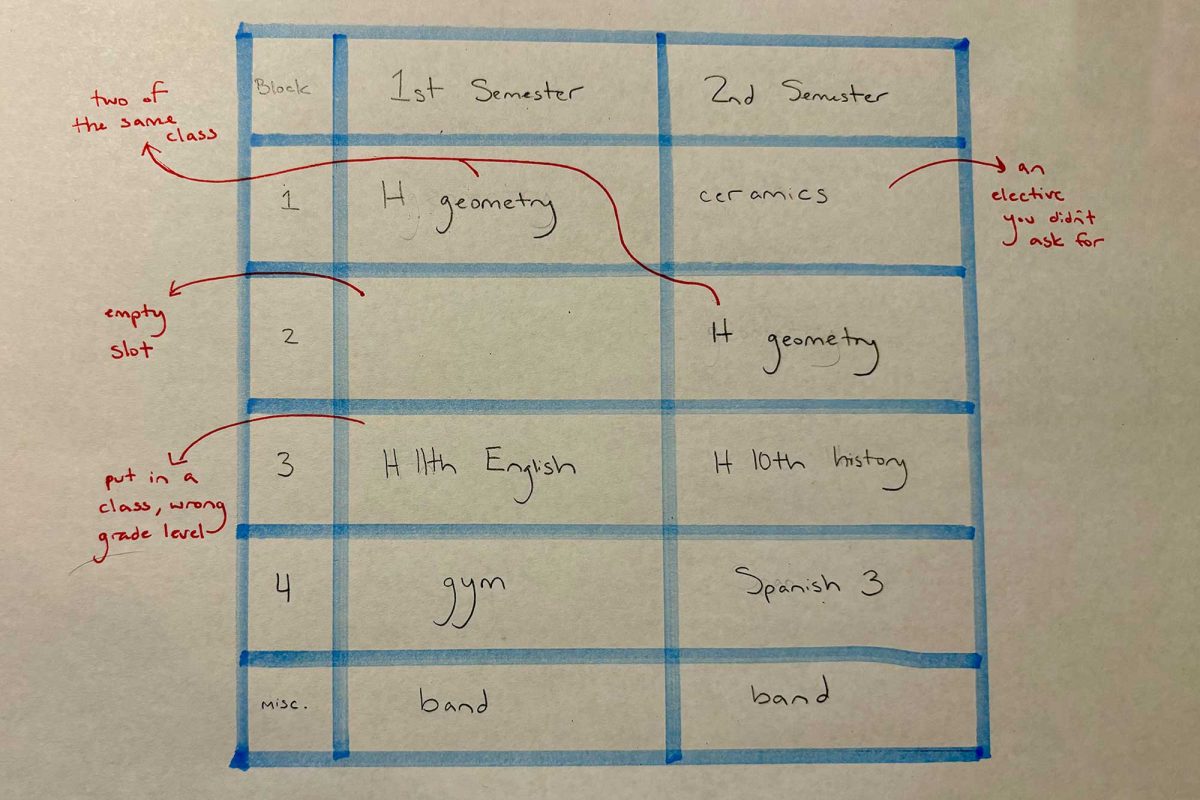 Block
1st Semester
2nd Semester
two of
the same
class
1
H geometry
ceramics
an
elective
you didn't
ask for
empty
slot
2
H geometry
put in a
class, wrong
grade level
3
H 11th English
H 10th history
4
gym
Spanish 3
misc.
band
band